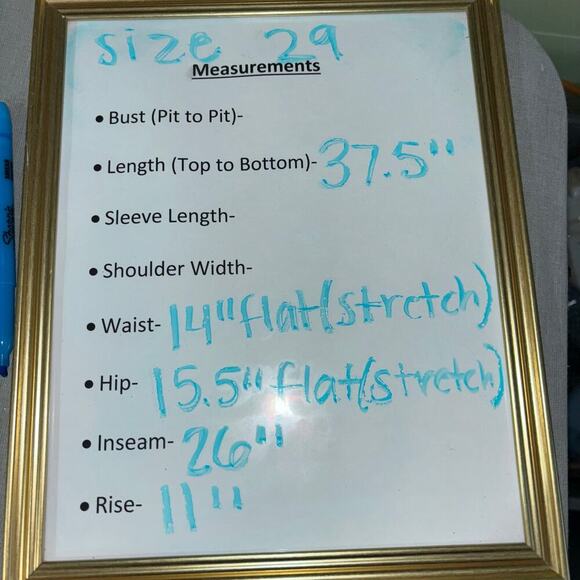 size 29
Measurements
• Bust (Pit to Pit)-
• Length (Top to Bottom)- 37.5"
• Sleeve Length-
• Shoulder Width-
• Waist- 14" flat (stretch)
• Hip- 15.5" flat (stretch)
• Inseam- 26"
• Rise- 11"
Sharpie